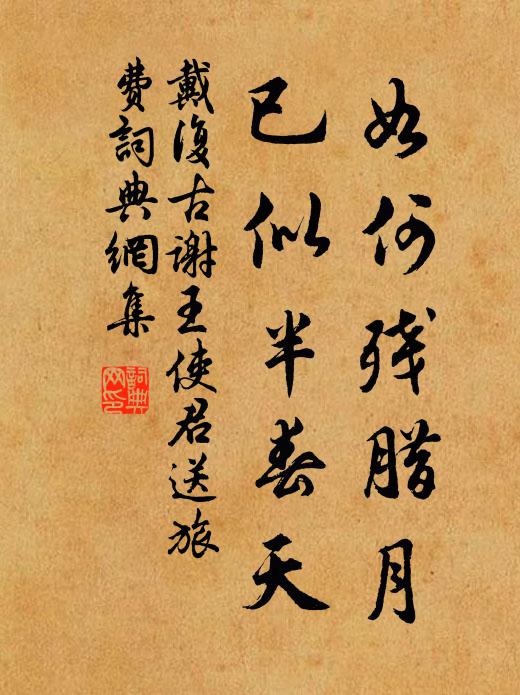 如何残腊月
已似半春天
戴復古谢王使君送旅
费詞典網集
詞典
网印